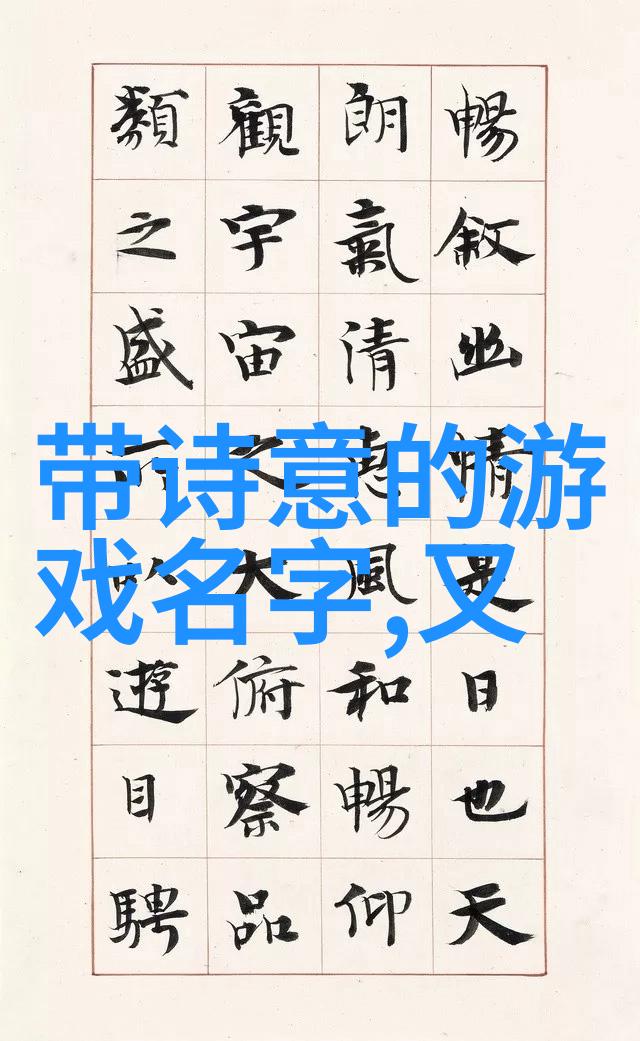 暢敘幽情是日也天
朗氣清惠風和暢仰
觀宇宙之大俯察品
類之盛所以遊目騁
带诗意的游
戏名字,又